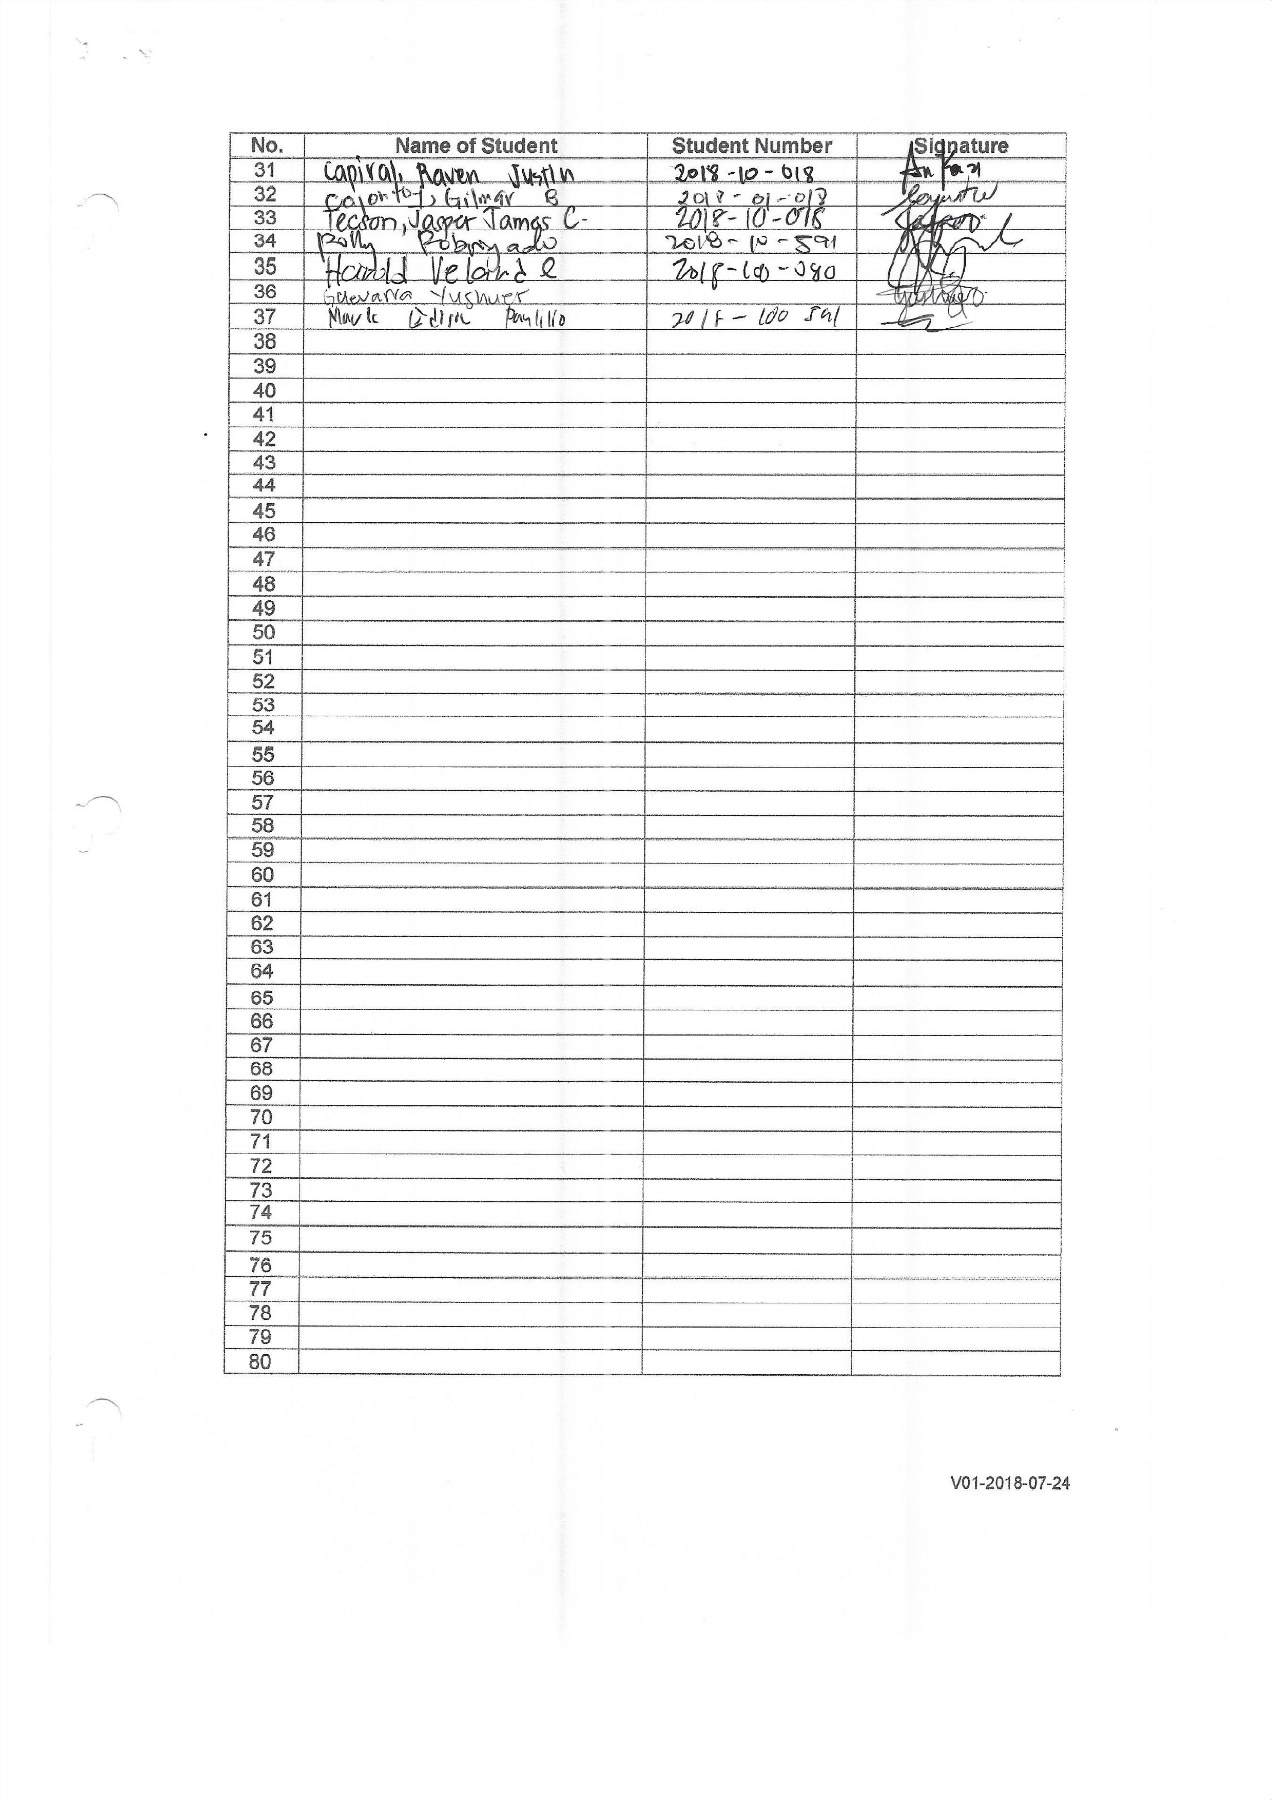 No. Name of Student Student Number Signature
31 Capiral, Raven Justin 2018-10-018
32 Gilmar B 2018-01-018
33 Tecson, Jasper James C- 2018-10-018
34 Rolly 2018-10-591
35 Harold 2018-100-080
36 Guevarra
37 Mark
38
39
40
41
42
43
44
45
46
47
48
49
50
51
52
53
54
55
56
57
58
59
60
61
62
63
64
65
66
67
68
69
70
71
72
73
74
75
76
77
78
79
80
V01-2018-07-24